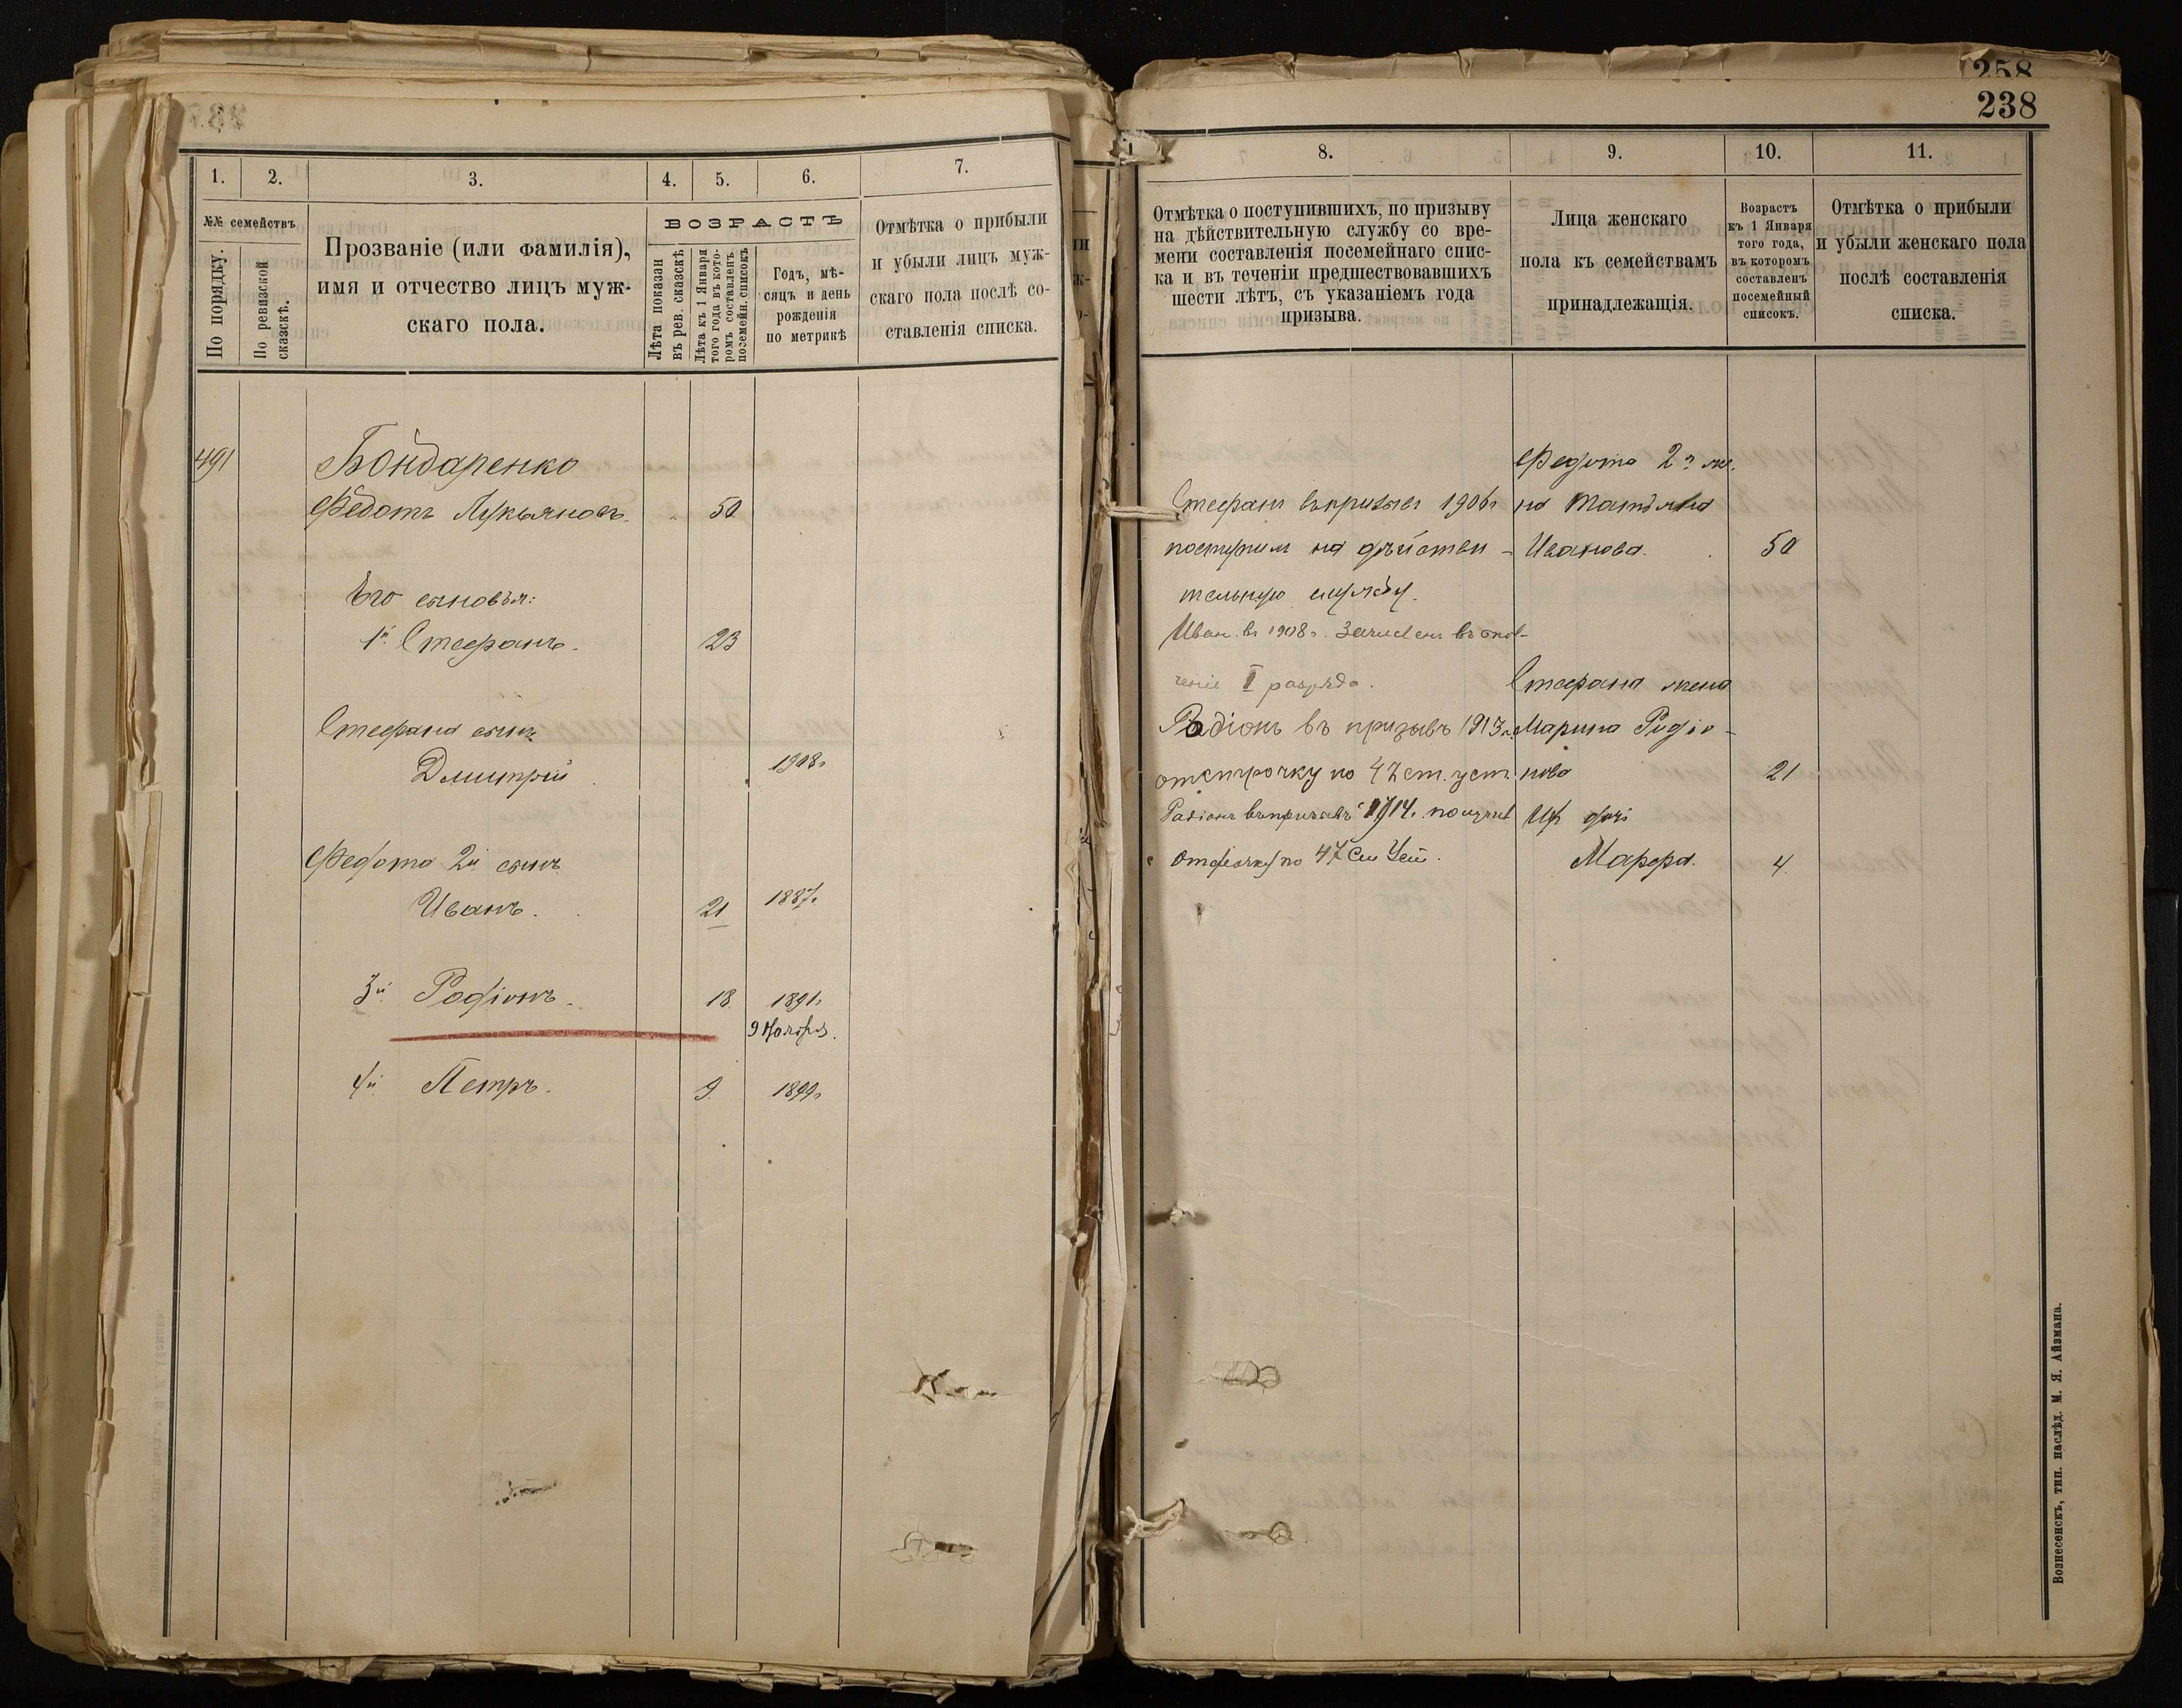 1.
2.
3.
4.
5.
6.
7.
№№ семействъ
По порядку.
По ревизской
сказскѣ.
Прозваніе (или фамилія),
имя и отчество лицъ муж-
скаго пола.
ВОЗРАСТЪ
Лѣта показан
въ рев. сказскѣ
Лѣта къ 1 Января
того года въ кото-
ромъ составленъ
посемейн. списокъ
Годъ, мѣ-
сяцъ и день
рожденія
по метрикѣ
Отмѣтка о прибыли
и убыли лицъ муж-
скаго пола послѣ со-
ставленія списка.
491
Бондаренко
Федотъ Лукьяновъ. 50
Его сыновья:
1й Стефанъ. 23
Стефана сынъ
Дмитрій 1908г
Федота 2й сынъ
Иванъ. 21 1887г
3й Родіонъ. 18 1891г
9 Ноября.
4й Петръ. 9. 1899г
258
238
8.
9.
10.
11.
Отмѣтка о поступившихъ, по призыву
на дѣйствительную службу со вре-
мени составленія посемейнаго спис-
ка и въ теченіи предшествовавшихъ
шести лѣтъ, съ указаніемъ года
призыва.
Лица женскаго
пола къ семействамъ
принадлежащія.
Возрастъ
къ 1 Января
того года,
въ которомъ
составленъ
посемейный
списокъ.
Отмѣтка о прибыли
и убыли женскаго пола
послѣ составленія
списка.
Стефанъ въ призывъ 1906г
поступилъ на дѣйстви-
тельную службу.
Иван. въ 1908г. Зачисленъ въ опол-
ченіе II разряда.
Радіонъ въ призывъ 1913г.
отстрочку по 47 ст. уст.
Радіонъ въ призывъ 1914г. получил
отсрочку по 47 Ст Уст.
Федота 2я же-
на Татьяна
Иванова. 50
Стефана жена
Марина Родіо-
нова 21
Их дочь
Марфа. 4.
Вознесенскъ, тип. наслѣд. М. Я. Айзмана.